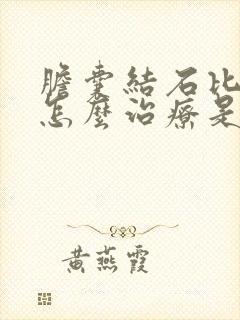 膽囊結石比
怎麼治療是
黃燕霞